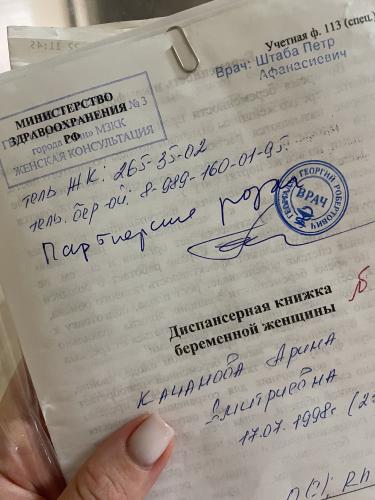 Учетная ф. 113 (спец.)
Врач: Штаба Петр
Афанасиевич
МИНИСТЕРСТВО
ЗДРАВООХРАНЕНИЯ № 3
города МЗКК
РФ
ЖЕНСКАЯ КОНСУЛЬТАЦИЯ
тель ЖК: 265-35-02
тель. бер-ой: 8-989-160-01-95.
Партнерские роды
ГЕОРГИЙ РОБЕРТОВИЧ
ВРАЧ
Диспансерная книжка
беременной женщины
Качанова Арина
Дмитриевна
17.07.1998г
Rh